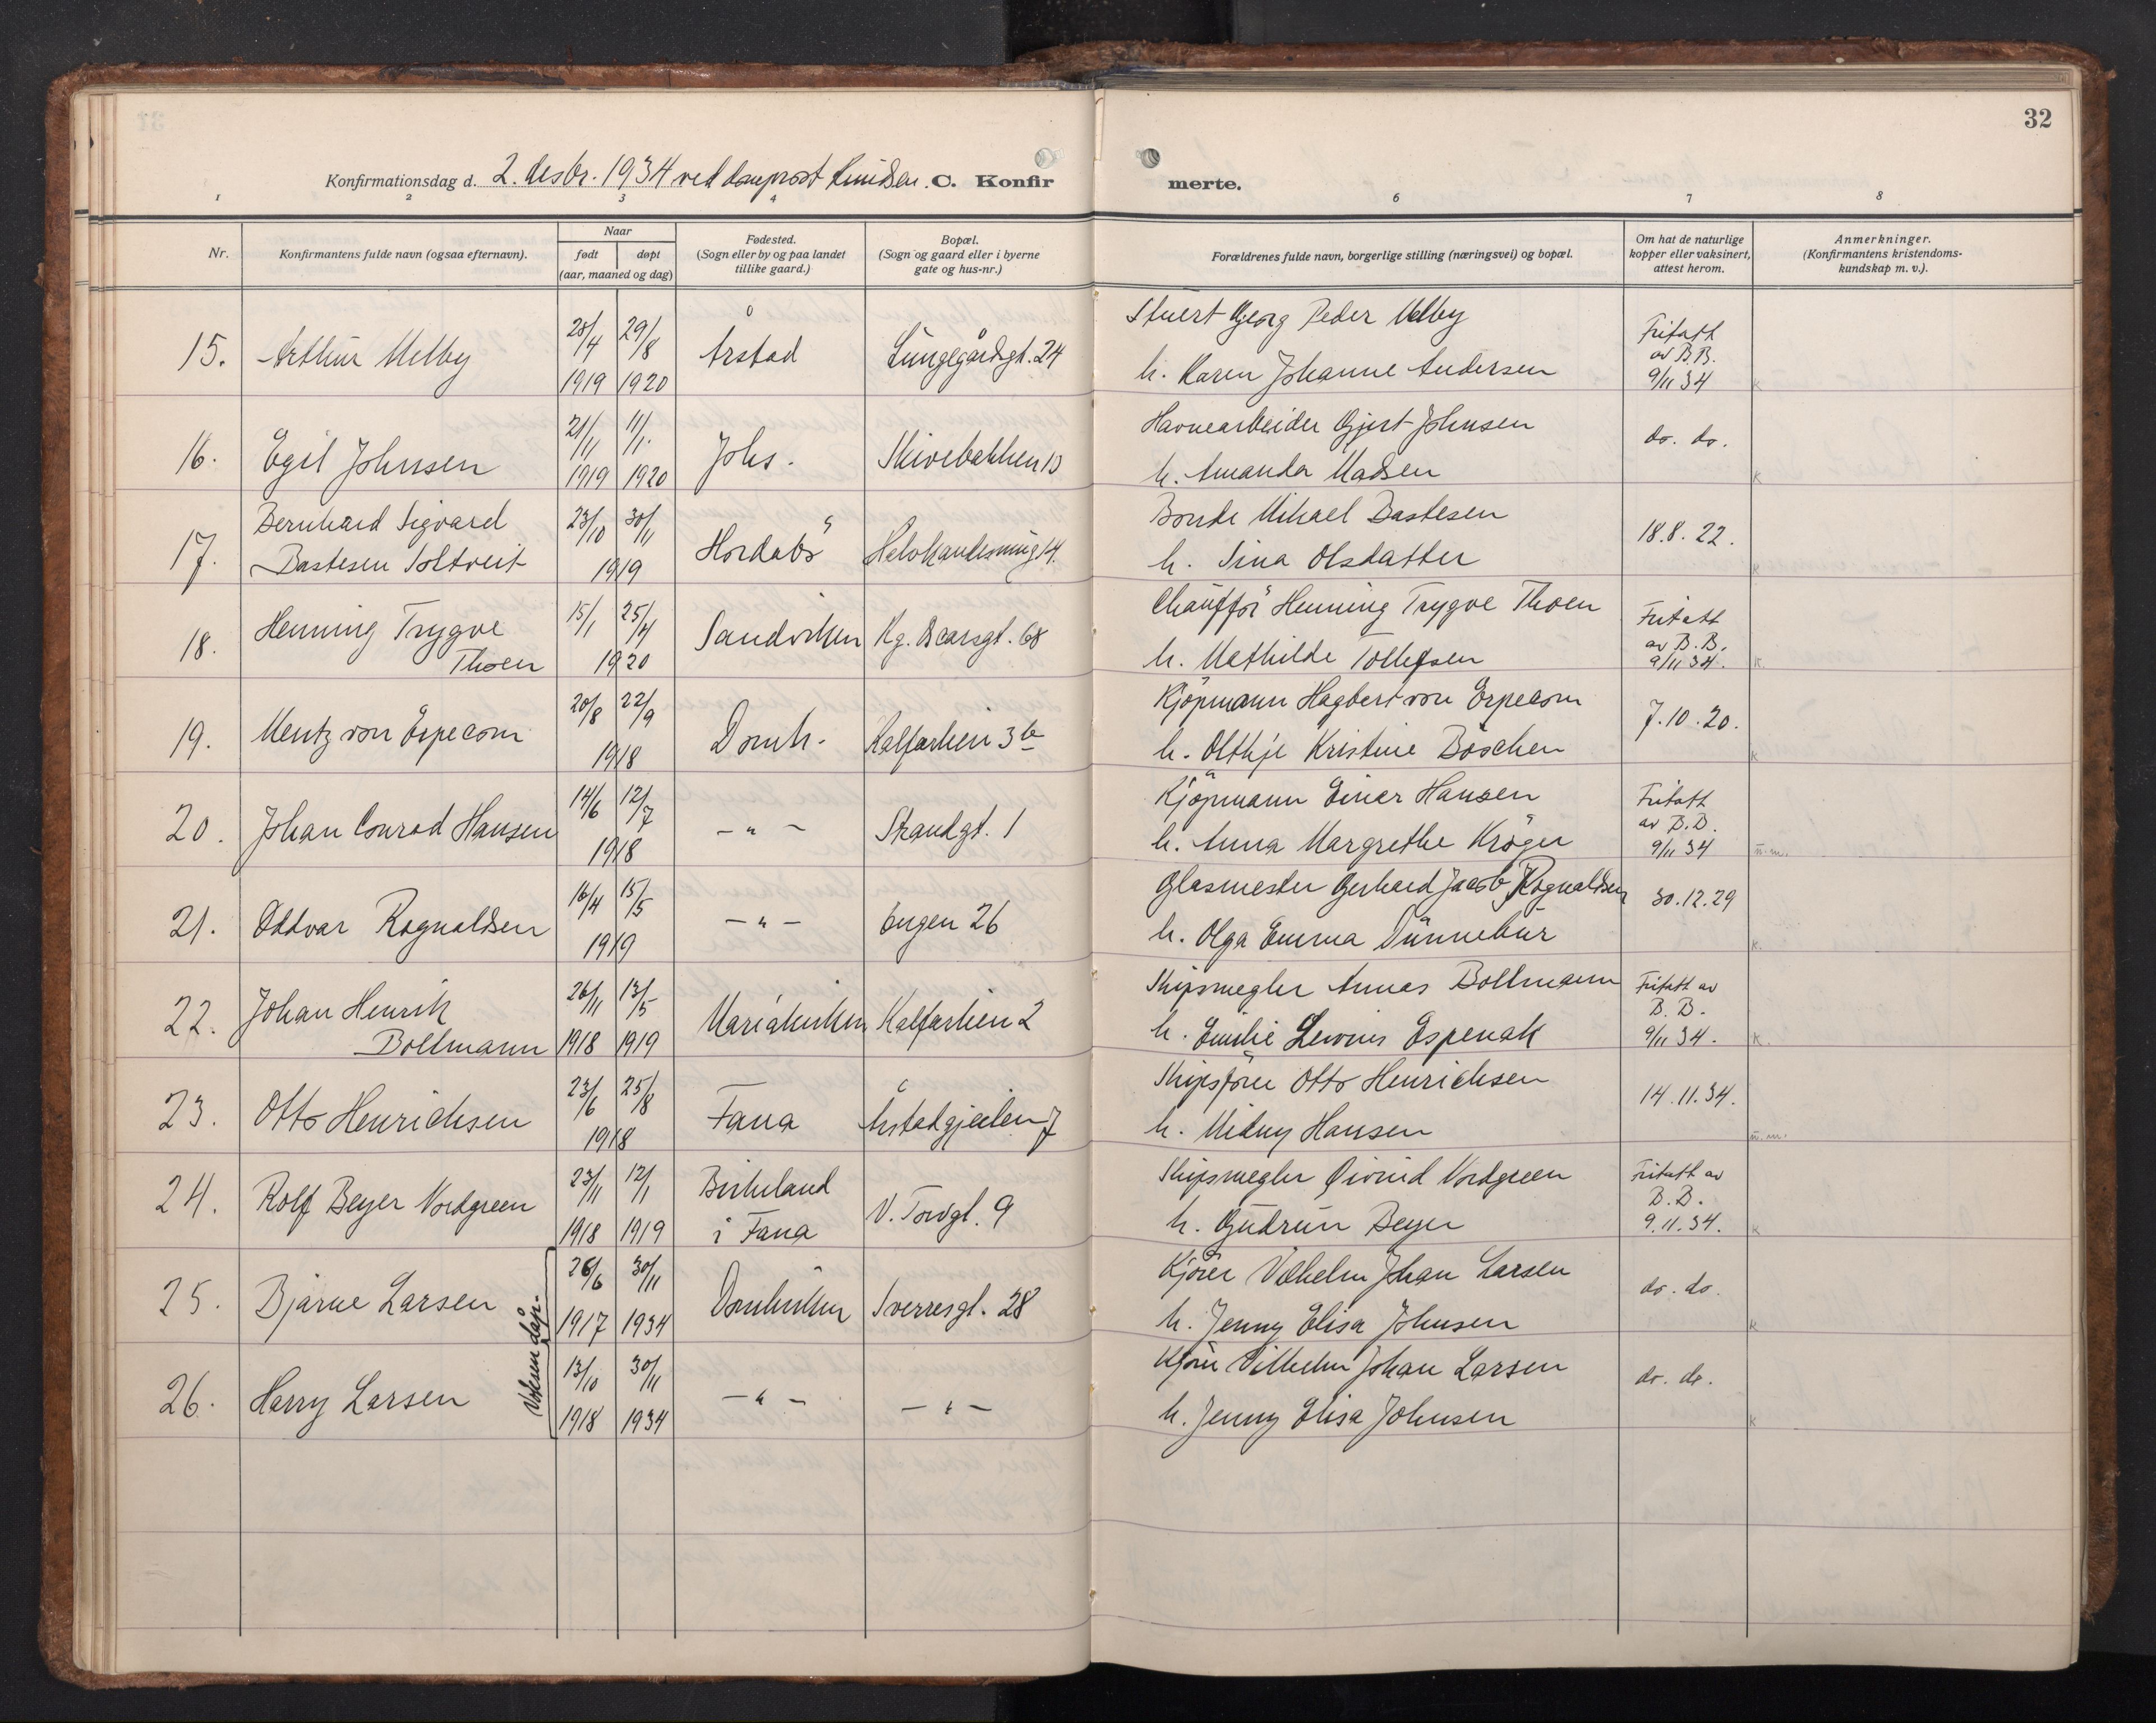 32
Konfirmationsdag d. 2. desbr. 1934 ved domprost Knudsen. C. Konfirmerte.
1 2 3 4 6 7 8
Nr.
Konfirmantens fulde navn (ogsaa efternavn).
Naar
født døpt
(aar, maaned og dag)
Fødested.
(Sogn eller by og paa landet
tillike gaard.)
Bopæl.
(Sogn og gaard eller i byerne
gate og hus-nr.)
Forældrenes fulde navn, borgerlige stilling (næringsvei) og bopæl.
Om hat de naturlige
kopper eller vaksinert,
attest herom.
Anmerkninger.
(Konfirmantens kristendoms-
kundskap m. v.).
15. Arthur Melby
28/4 1919 29/8 1920
Årstad
Lungegårdsgt. 24
Stuert Georg Peder Melby
h. Karen Johanne Andersen
Fritatt
av B.B.
9/11 34
k
16. Egil Johnsen
21/11 1919 11/1. 1920
Johs.
Skivebakken 13
Havnearbeider Gjert Johnsen
h. Amanda Madsen
do. do.
k
17. Bernhard Sigvard
Bastesen Soltveit
23/10 30/11 1919
Hordabö
14.
Bonde Mikael Bastesen
h. Sina Olsdatter
18.8.22.
k
18. Henning Trygve
Thoen
15/1 25/4 1920
Sandviken
Kg. Oscarsgt. 68
Chaufför Henning Trygve Thoen
h. Mathilde Tollefsen
Fritatt
av B.B.
9/11 34.
k.
19. Mentz von Erpecom
20/8 22/9 1918
Domk.
Kalfarlien 3b
Kjöpmann Hagbert von Erpecom
h. Olthje Kristine Böschen
7.10.20.
k
20. Johan Conrad Hansen
14/6 12/7 1918
— " —
Strandgt. 1
Kjöpmann Einar Hansen
h. Anna Margrethe Kröger
Fritatt
av B.B.
9/11 34
u.m.
21. Oddvar Rognaldsen
16/4 15/5 1919
— " —
Engen 26
Glasmester Gerhard Jacob Rognaldsen
h. Olga Emma Dünnebür
30.12.29
k.
22. Johan Henrik
Bollmann
26/11 1918 13/5 1919
Mariakirken
Kalfarlien 2
Skipsmegler Annas Bollmann
h. Emilie Espenak
Fritatt av
B.B.
9/11 34.
k.
23. Otto Henrichsen
23/6 25/8 1918
Fana
Årstadgjeilen 7
Skipsförer Otto Henrichsen
h. Hansen
14.11.34.
u.m.
24. Rolf Beyer Nordgreen
23/11 1918 12/1 1919
Birkeland
i Fana
V. Torvgt. 9
Skipsmegler Øivind Nordgreen
h. Gudrun Beyer
Fritatt av
B.B.
9.11.34.
k
25. Bjarne Larsen
Voksen dåp.
26/6 1917 30/11 1934
Domkirken
Sverresgt. 28
Kjörer Vilhelm Johan Larsen
h. Jenny Elisa Johnsen
do. do.
k
26. Harry Larsen
13/10 1918 30/11 1934
— " —
— " —
Kjörer Vilhelm Johan Larsen
h. Jenny Elisa Johnsen
do. do.
k